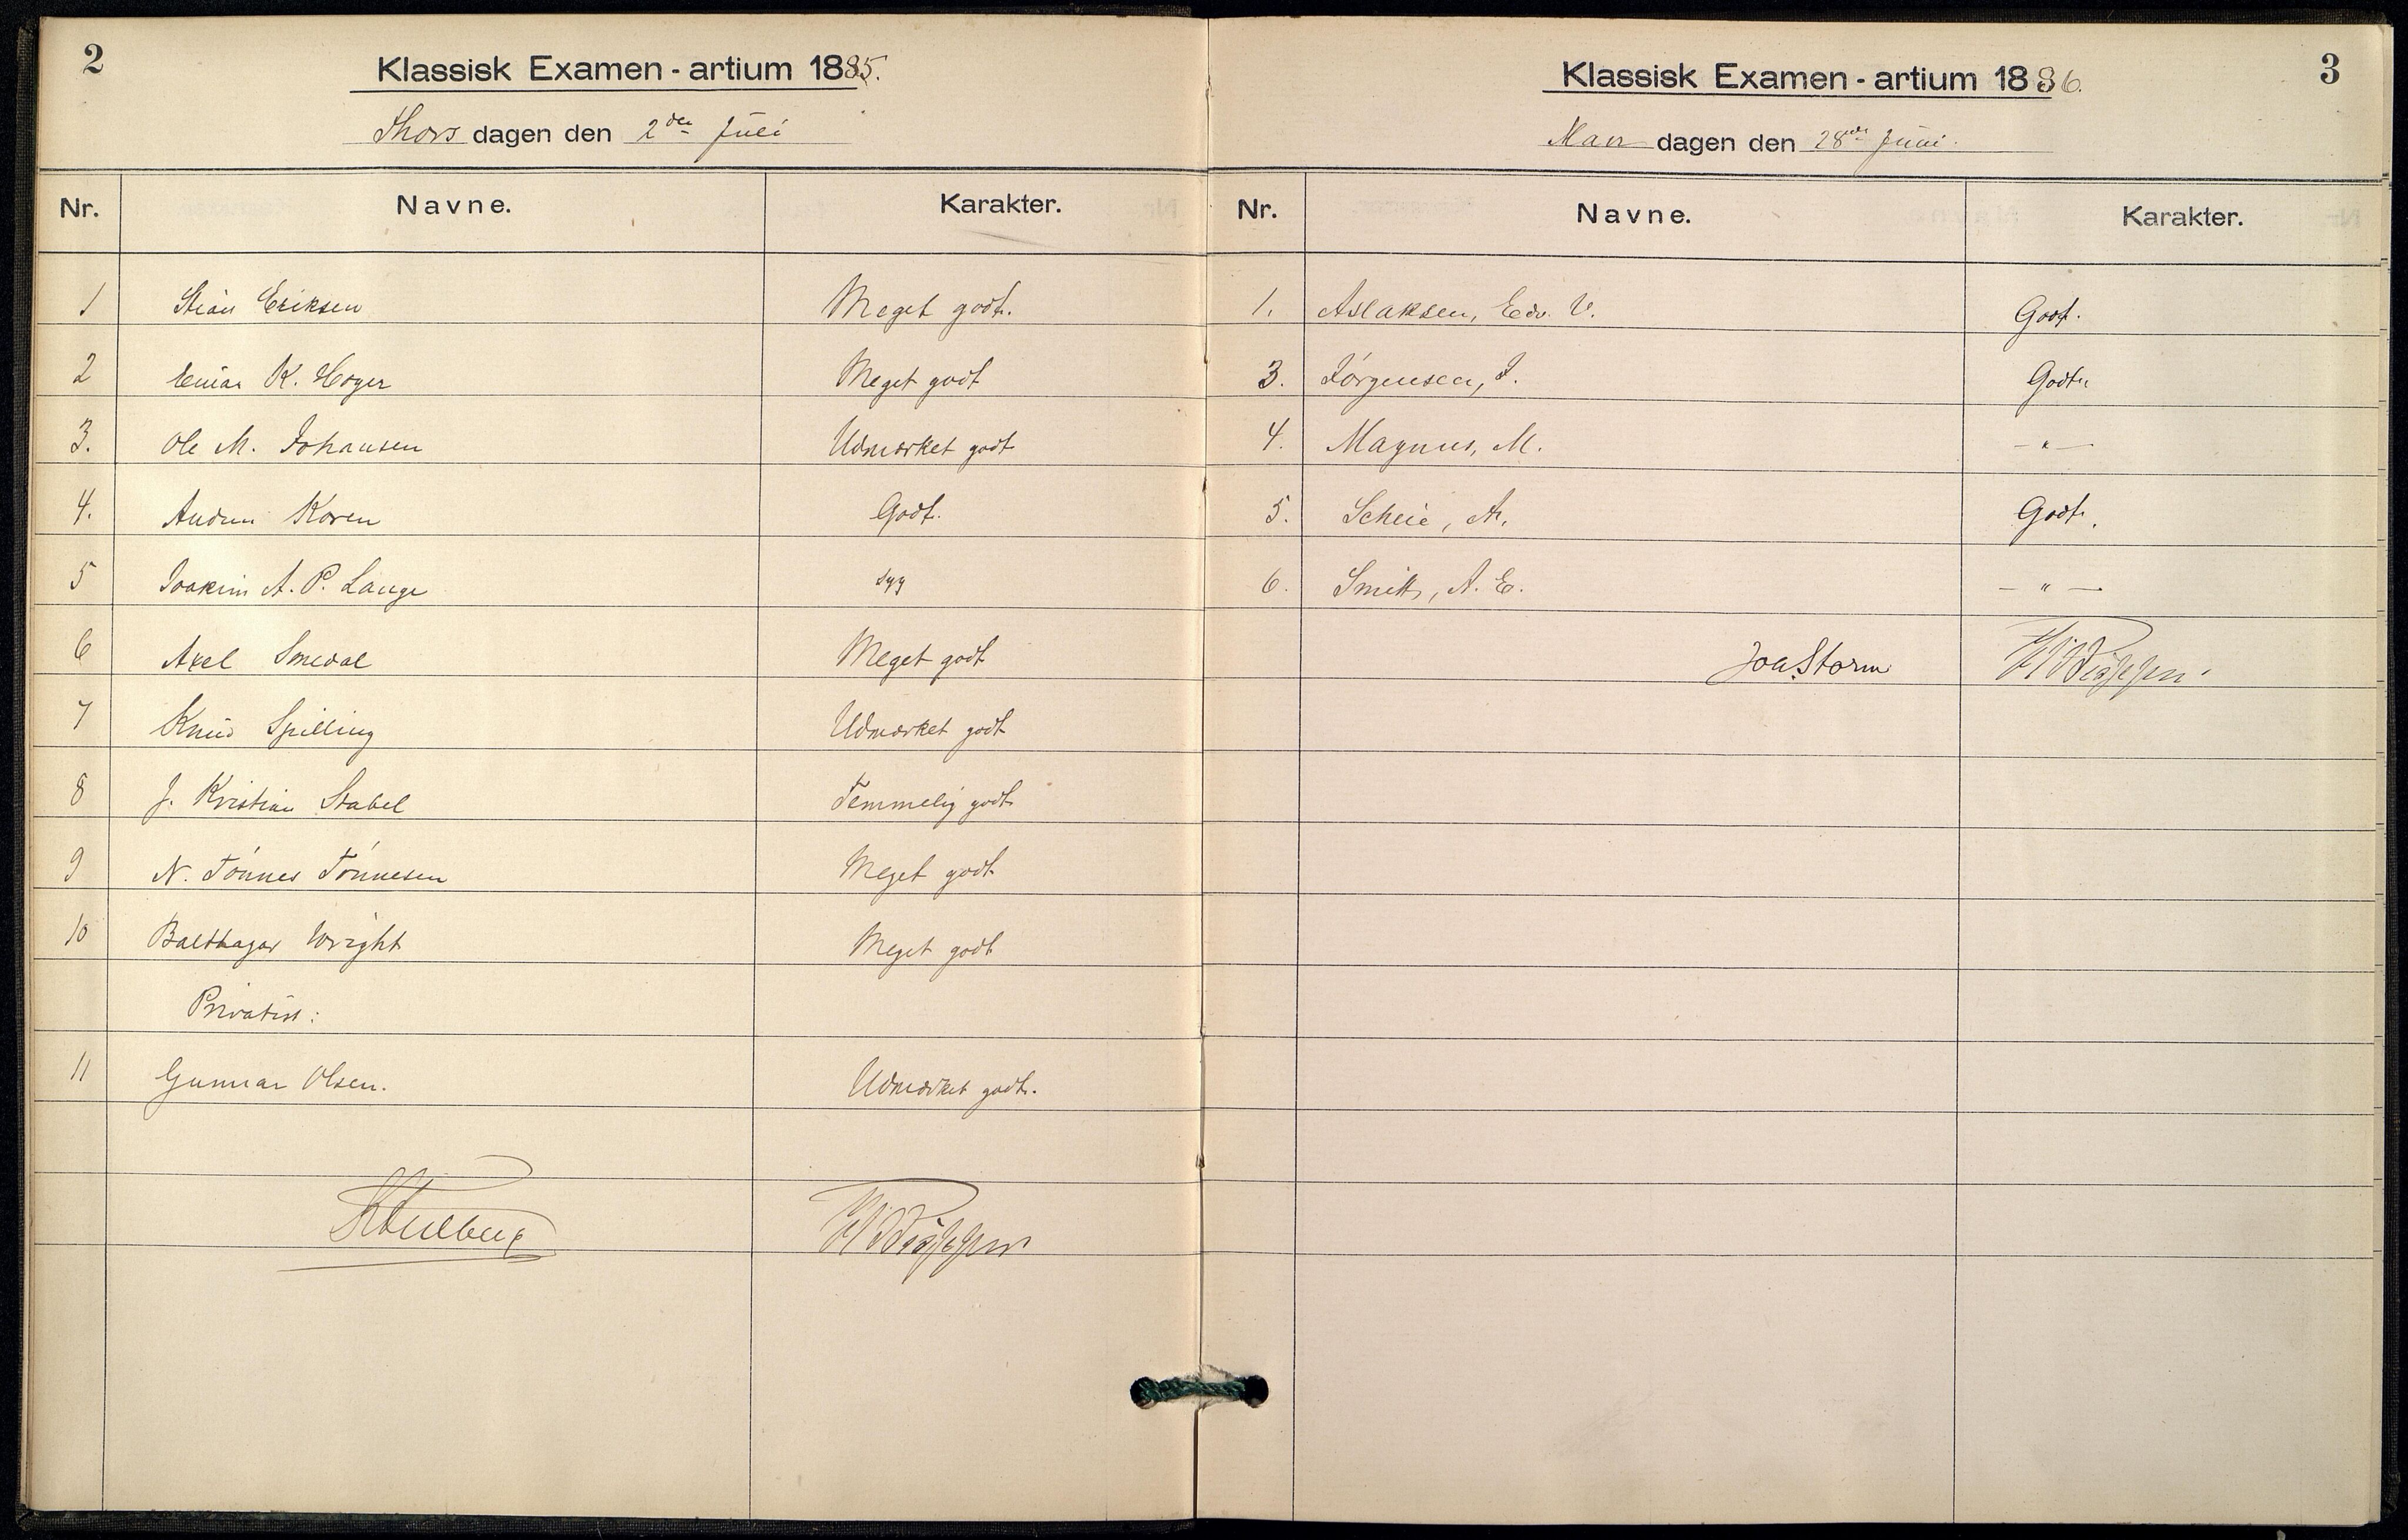 2
Klassisk Examen - artium 1885.
Thors dagen den 2den Juli
Nr. Navne. Karakter.
1 Stian Eriksen Meget godt.
2 Einar K. Hoyer Meget godt
3. Ole M. Johansen Udmærket godt
4. Audun Koren Godt.
5 Joakim A. P. Lange syg
6 Axel Smedal Meget godt
7 Knud Spilling Udmærket godt
8 J. Kristian Stabel Temmelig godt
9 N. Tönnes Tönnesen Meget godt
10 Balthazar Wright Meget godt
Privatist:
11 Gunnar Olsen. Udmærket godt.
3
Klassisk Examen - artium 1886.
Man dagen den 28de Juni.
Nr. Navne. Karakter.
1. Aslaksen, Edv. V. Godt.
3. Jörgensen, J. Godt.
4. Magnus, M. — " —
5. Scheie, A. Godt.
6. Smith, A. E. — " —
Joh. Storm